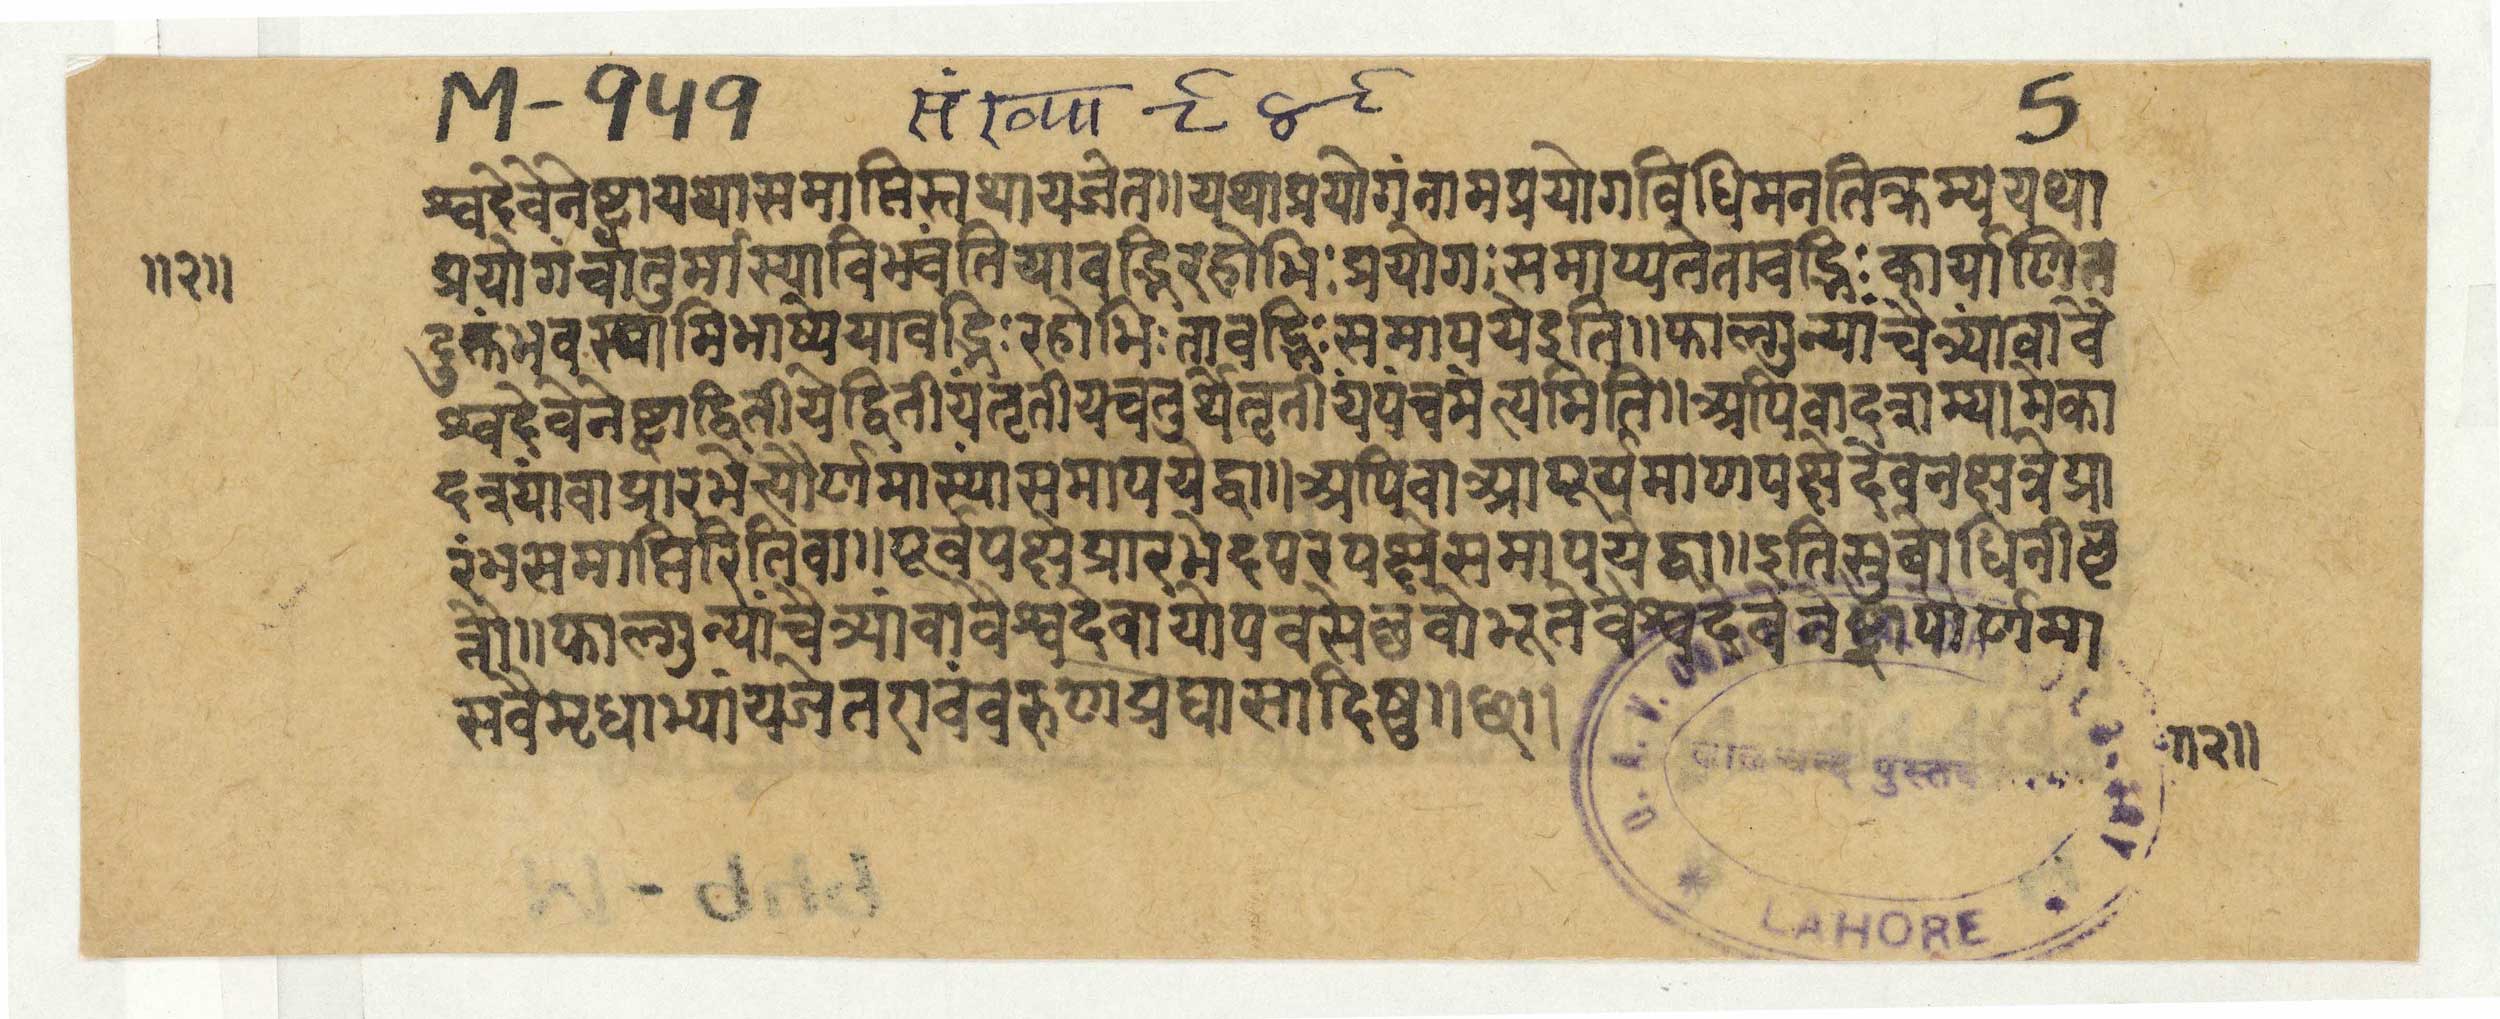 M-१५१ संख्या ९४९ 5
श्वदेवेनेष्ट्वायथासमाप्तिस्तथायजेत॥यथाप्रयोगंनामप्रयोगविधिमनतिक्रम्ययथा
॥२॥
प्रयोगंचातुर्मास्याविभवंतियावद्भिरहोभिःप्रयोगःसमाप्यतेतावद्भिःकार्याणित
दुक्तंभवस्वामिभाष्येयावद्भिःरहोभिःतावद्भिःसमापयेइति॥फाल्गुन्यांचैत्र्यांवावै
श्वदेवेनेष्ट्वाद्वितीयेद्वितीयंतृतीयचतुर्थेतृतीयंपंचमेत्यमिति॥अपिवादत्राम्यामेका
दत्र्यांवाप्रारभेत्पौर्णमांस्यांसमापयेद्वा॥अपिवाआपूर्यमाणपक्षेदेवनक्षत्रेप्रा
रंभसमाप्तिरितिवा॥पूर्वपक्षेप्रारभेदपरपक्षेसमापयेद्वा॥इतिसुबोधिनीवृ
त्तौ॥फाल्गुन्यांचैत्र्यांवावैश्वदेवायोपवसेछ्वोभूतेवैश्वदेवेनेष्ट्वापौर्णमा
सवैमृधाभ्यांयजेतरावंवरुणप्रघासादिषु॥छ॥
॥२॥
D. A. V.
पुस्तक
LAHORE